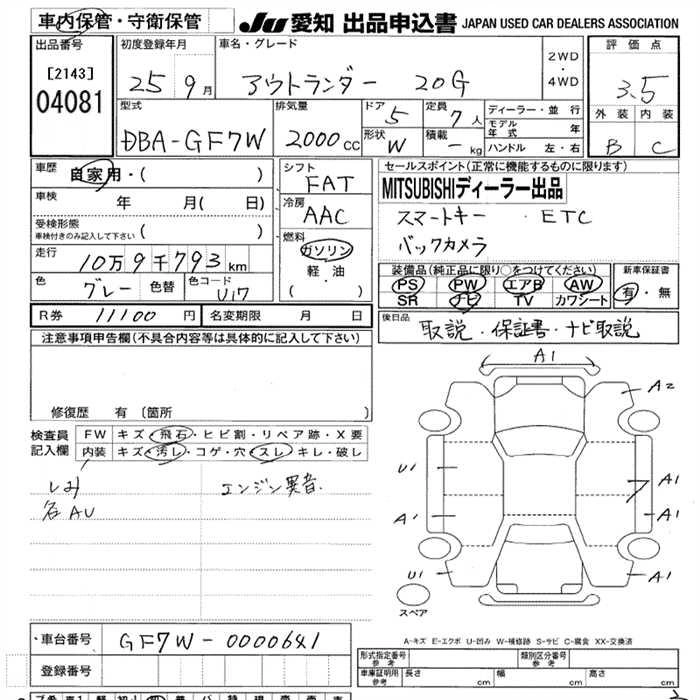 車内保管・守衛保管
JU 愛知 出品申込書 JAPAN USED CAR DEALERS ASSOCIATION
出品番号
[2143]
04081
初度登録年月
25 9月
車名・グレード
アウトランダー 20G
2WD
・
4WD
評価点
3.5
外装 内装
B C
型式
DBA-GF7W
排気量
2000 cc
ドア 5
形状 W
定員 7人
積載 - kg
ディーラー・並行
モデル年式 年
ハンドル 左・右
車歴
自家用・( )
車検
年 月( 日)
受検形態
車検付きのみ記入して下さい ( )
走行
10万9千793km
色 グレー 色替 色コード U17
シフト
FAT
冷房
AAC
燃料
ガソリン
軽油
( ・ )
セールスポイント(正常に機能するものに限ります)
MITSUBISHIディーラー出品
スマートキー ・ETC
バックカメラ
装備品(純正品に限り○をつけてください)
PS PW エアB AW
SR ナビ TV カワシート
新車保証書
有・無
R券 11100円 名変期限 月 日
後日品
取説・保証書・ナビ取説
注意事項申告欄(不具合内容等は具体的に記入して下さい)
修復歴 有 〔箇所 〕
検査員記入欄
FW キズ・飛石・ヒビ割・リペア跡・X要
内装 キズ・汚レ・コゲ・穴・スレ・キレ・破レ
しみ
エンジン異音.
各AU
A1
A2
U1
A1
A1
A1
U1
A1
スペア
A-キズ E-エクボ U-凹み W-補修跡 S-サビ C-腐食 XX-交換済
車台番号 GF7W-0000641
登録番号
形式指定番号 参考
類別区分番号 参考
車庫証明用 参考
長さ cm 幅 cm 高さ cm